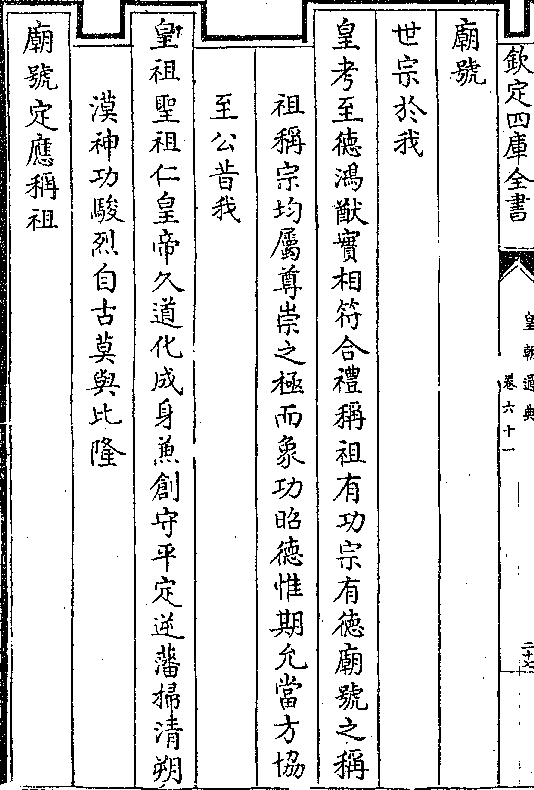 欽定四庫全書
皇朝通典
卷六十一
二十六
廟號
世宗於我
皇考至德鴻猷實相符合禮稱祖有功宗有德廟號之稱
祖稱宗均屬尊崇之極而象功昭德惟期允當方協
至公昔我
皇祖聖祖仁皇帝久道化成身兼創守平定逆藩掃清朔
漠神功駿烈自古莫與比隆
廟號定應稱祖